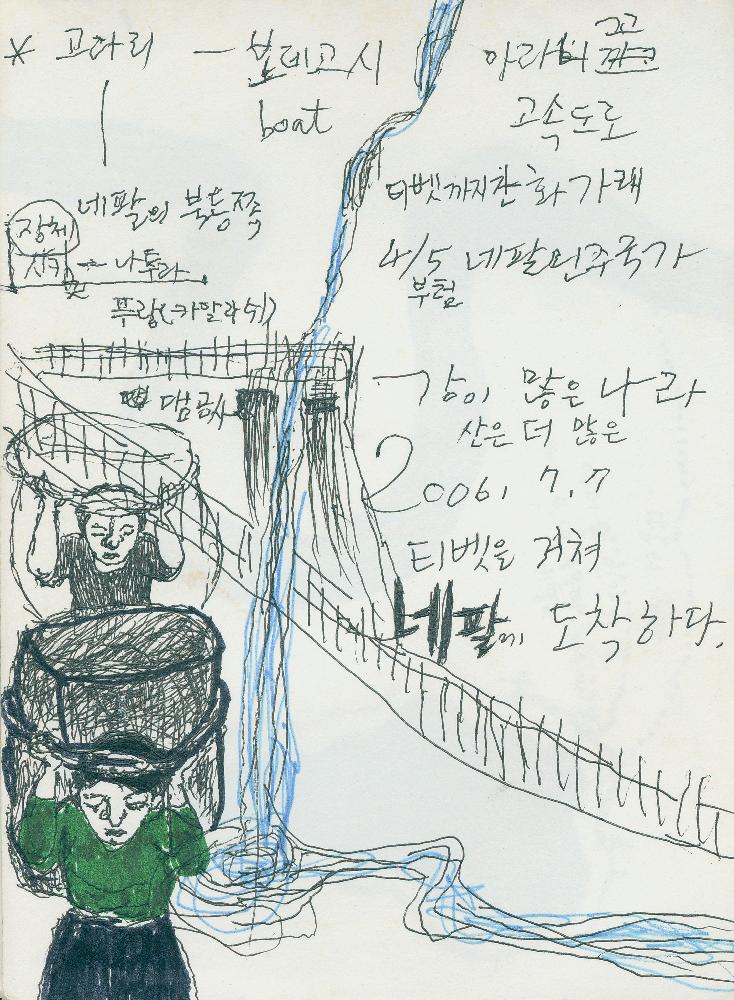 * 코다리 — 보데고시
boat
아라비꼬
고속도로
네팔의 북동쪽
티벳까지 찬 화가래
장체
나투라
4/5 네팔인주국가
부텀
푸랑(카말라쉬)
댐공사
강이 많은 나라
산은 더 많은
2006. 7. 7
티벳을 거쳐
네팔에 도착하다.